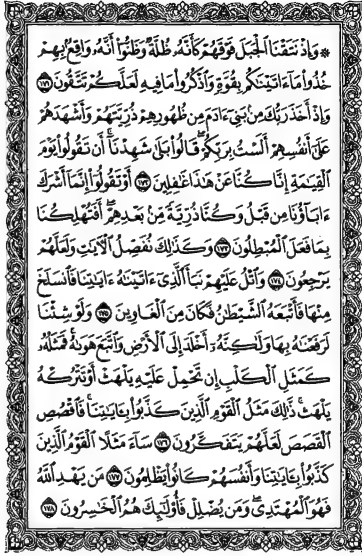 ۞ وَإِذْ نَتَقْنَا ٱلْجَبَلَ فَوْقَهُمْ كَأَنَّهُۥ ظُلَّةٌ وَظَنُّوٓا۟ أَنَّهُۥ وَاقِعٌۢ بِهِمْ
خُذُوا۟ مَآ ءَاتَيْنَٰكُم بِقُوَّةٍ وَٱذْكُرُوا۟ مَا فِيهِ لَعَلَّكُمْ تَتَّقُونَ ١٧١
وَإِذْ أَخَذَ رَبُّكَ مِنۢ بَنِىٓ ءَادَمَ مِن ظُهُورِهِمْ ذُرِّيَّتَهُمْ وَأَشْهَدَهُمْ
عَلَىٰٓ أَنفُسِهِمْ أَلَسْتُ بِرَبِّكُمْ ۖ قَالُوا۟ بَلَىٰ ۛ شَهِدْنَآ ۛ أَن تَقُولُوا۟ يَوْمَ
ٱلْقِيَٰمَةِ إِنَّا كُنَّا عَنْ هَٰذَا غَٰفِلِينَ ١٧٢ أَوْ تَقُولُوٓا۟ إِنَّمَآ أَشْرَكَ
ءَابَآؤُنَا مِن قَبْلُ وَكُنَّا ذُرِّيَّةً مِّنۢ بَعْدِهِمْ ۖ أَفَتُهْلِكُنَا
بِمَا فَعَلَ ٱلْمُبْطِلُونَ ١٧٣ وَكَذَٰلِكَ نُفَصِّلُ ٱلْـَٔايَٰتِ وَلَعَلَّهُمْ
يَرْجِعُونَ ١٧٤ وَٱتْلُ عَلَيْهِمْ نَبَأَ ٱلَّذِىٓ ءَاتَيْنَٰهُ ءَايَٰتِنَا فَٱنسَلَخَ
مِنْهَا فَأَتْبَعَهُ ٱلشَّيْطَٰنُ فَكَانَ مِنَ ٱلْغَاوِينَ ١٧٥ وَلَوْ شِئْنَا
لَرَفَعْنَٰهُ بِهَا وَلَٰكِنَّهُۥٓ أَخْلَدَ إِلَى ٱلْأَرْضِ وَٱتَّبَعَ هَوَىٰهُ ۚ فَمَثَلُهُۥ
كَمَثَلِ ٱلْكَلْبِ إِن تَحْمِلْ عَلَيْهِ يَلْهَثْ أَوْ تَتْرُكْهُ
يَلْهَث ۚ ذَّٰلِكَ مَثَلُ ٱلْقَوْمِ ٱلَّذِينَ كَذَّبُوا۟ بِـَٔايَٰتِنَا ۚ فَٱقْصُصِ
ٱلْقَصَصَ لَعَلَّهُمْ يَتَفَكَّرُونَ ١٧٦ سَآءَ مَثَلًا ٱلْقَوْمُ ٱلَّذِينَ
كَذَّبُوا۟ بِـَٔايَٰتِنَا وَأَنفُسَهُمْ كَانُوا۟ يَظْلِمُونَ ١٧٧ مَن يَهْدِ ٱللَّهُ
فَهُوَ ٱلْمُهْتَدِى ۖ وَمَن يُضْلِلْ فَأُو۟لَٰٓئِكَ هُمُ ٱلْخَٰسِرُونَ ١٧٨